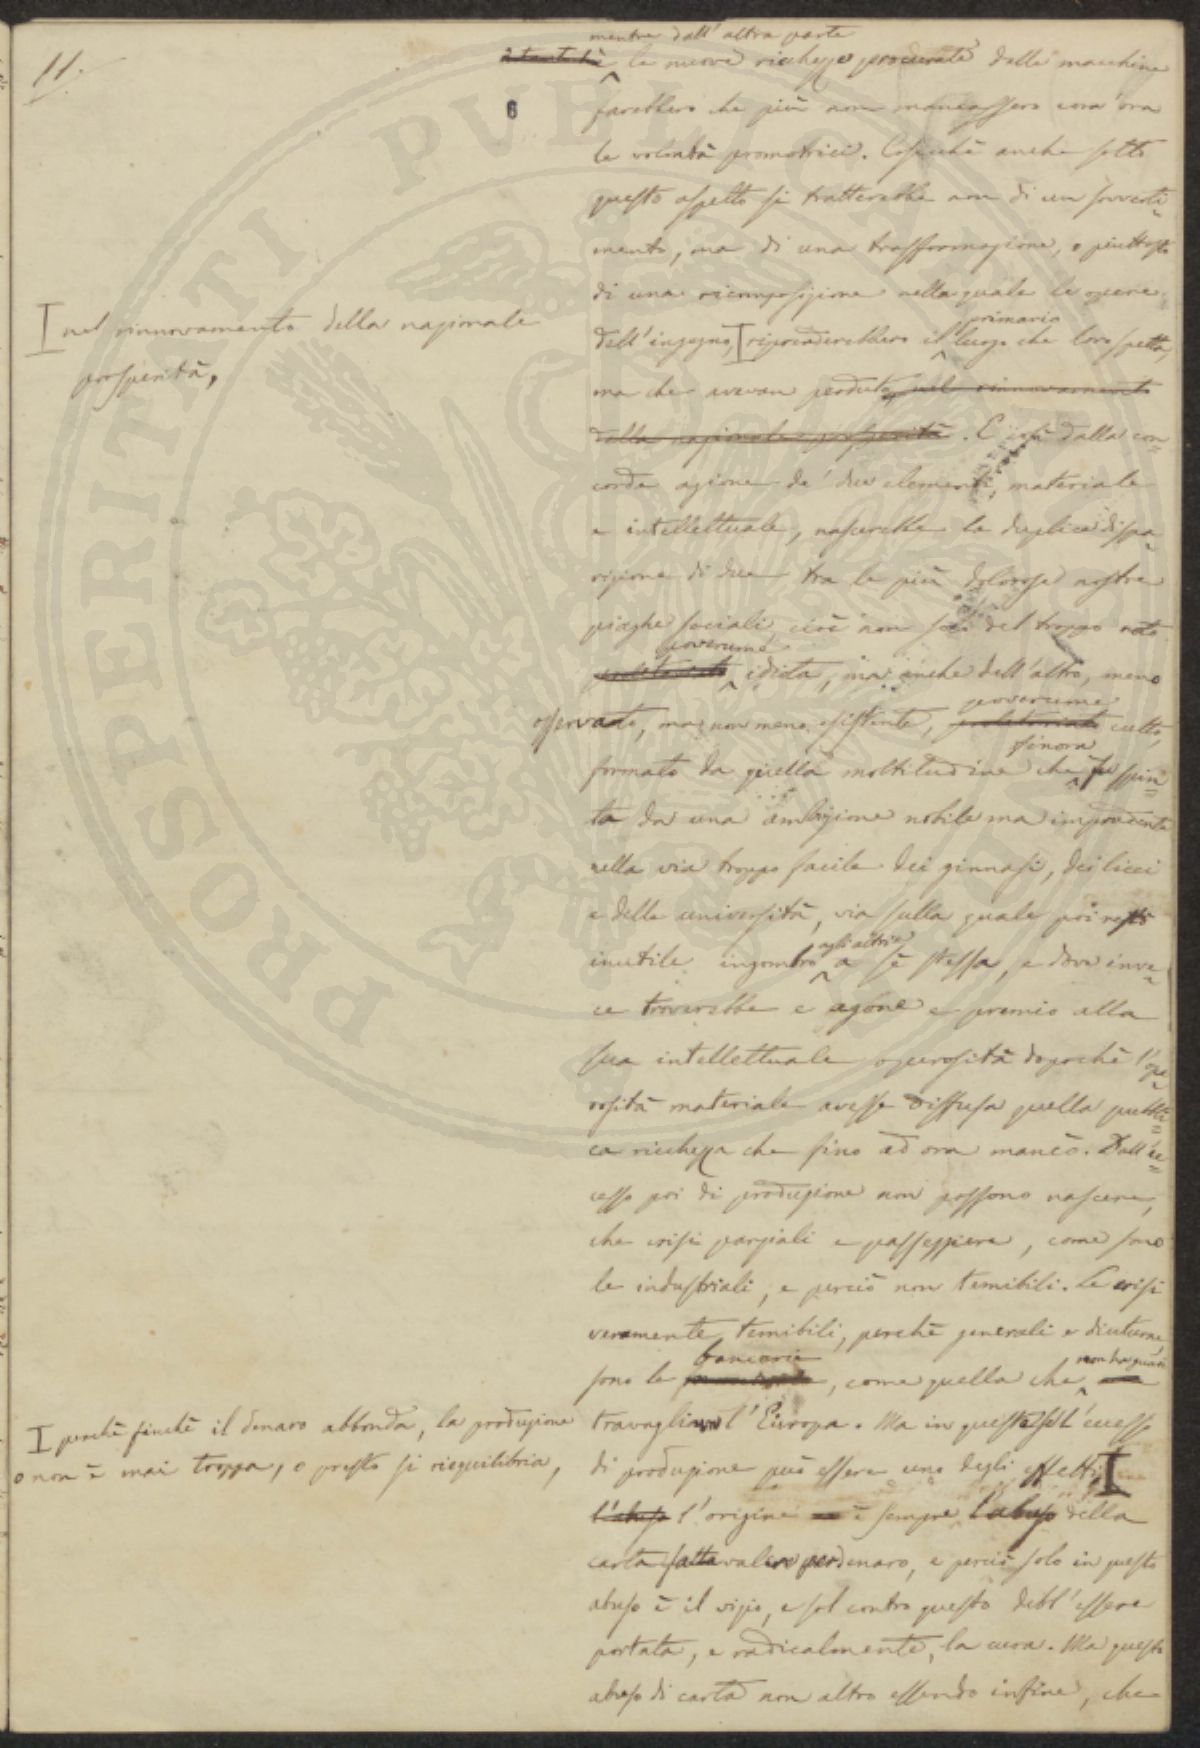 11.
mentre dall'altra parte
le nuove ricchezze procurate dalle macchine
6
farebbero che più non mancassero com'ora
le volontà promotrici. Cosicchè anche sotto
questo aspetto si tratterebbe non di un sovverti=
mento, ma di una trasformazione, o piuttosto
di una ricomposizione nella quale le opere
primario
dell'ingegno, riprenderebbero il luogo che loro spetta,
nel rinnovamento della nazionale
prosperità,
ma che avevan perduto nel rinnovamento
della nazionale prosperità. E così dalla con=
corde azione de' due elementi, materiale
e intellettuale, nascerebbe la duplice spa=
rizione di due tra le più dolorose nostre
piaghe sociali, cioè non solo del troppo noto
poverume
proletariato idiota, ma anche dell'altro, meno
poverume
osservato, ma non meno esistente, proletariato culto,
finora
formato da quella moltitudine che fu spin=
ta da una ambizione nobile ma imprudente
nella via troppo facile dei ginnasi, dei licei
e delle università, via sulla quale poi restò
agli altri e
inutile ingombro a sè stessa, e dove inve=
ce troverebbe e agone e premio alla
sua intellettuale operosità dopochè l'ope=
rosità materiale avesse diffusa quella pubbli=
ca ricchezza che fino ad ora mancò. Dall'ec=
cesso poi di produzione non possono nascere,
che crisi parziali e passeggiere, come sono
le industriali, e perciò non temibili. Le crisi
veramente temibili, perchè generali e diuturne,
bancarie
non ha guari
sono le , come quella che
travagliò l'Europa. Ma in queste sol l'eccesso
di produzione può essere uno degli effetti
perchè finchè il denaro abbonda, la produzione
o non è mai troppa, o presto si riequilibria,
l'abuso l'origine è sempre l'abuso della
carta fatta valere per denaro, e perciò solo in questo
abuso è il vizio, e sol contro questo debb'essere
portata, e radicalmente, la cura. Ma questo
abuso di carta non altro essendo infine, che
PVBLICAE
PROSPERITATI